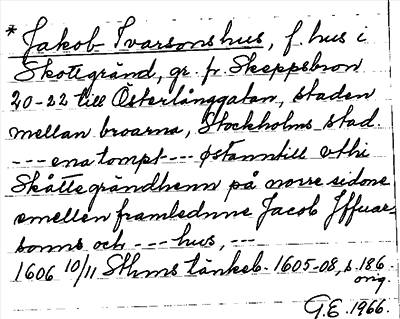 * Jakob Ivarsons hus, f. hus i
Skottgränd, gr. fr. Skeppsbron
20-22 till Österlånggatan, staden
mellan broarna, Stockholms stad.
--- ena tompt --- østanntill vthi
Skåttegrändhenn på norre sidone
emellen framledne Jacob Iffuar-
sonns och --- hus, ---
1606 10/11 Sthms tänkeb. 1605-08, s. 186
orig.
G.E. 1966.